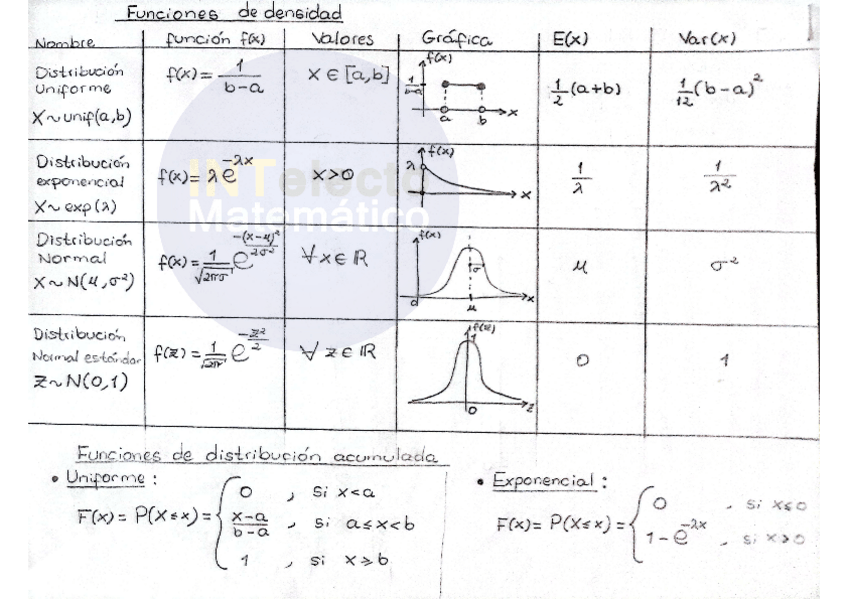 Funciones de densidad
Nombre función f(x) Valores Gráfica E(x) Var(x)
Distribución Uniforme
X∼unif(a,b)
f(x) = 1/(b-a)
x ∈ [a,b]
f(x) 1/(b-a) a b x
1/2 (a+b)
1/12 (b-a)²
Distribución exponencial
X∼exp(λ)
f(x) = λe^(-λx)
x>0
f(x) λ x
1/λ
1/λ²
Distribución Normal
X∼N(μ,σ²)
f(x) = 1/√(2πσ) e^(-(x-μ)²/2σ²)
∀x∈ℝ
f(x) σ μ x
μ
σ²
Distribución Normal estándar
Z∼N(0,1)
f(z) = 1/√(2π) e^(-z²/2)
∀ z∈ℝ
f(z) 1 0 z
0
1
INTelecto
Matemático
Funciones de distribución acumulada
• Uniforme:
F(x) = P(X≤x) = {
0 , si x<a
(x-a)/(b-a) , si a≤x<b
1 , si x≥b
• Exponencial:
F(x) = P(X≤x) = {
0 , si x≤0
1-e^(-λx) , si x>0